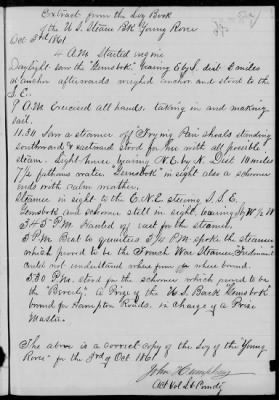 Extract from the Log Book
of the U.S. Steam Bk "Young Rover"
Oct 3rd 1861
4 A.M. Started engine
Daylight saw the "Gemsbok" bearing E by S. dist 6 miles
at anchor afterwards weighed anchor and stood to the
S.E.
9 A.M. Exercised all hands, taking in and making
sail.
11.30 Saw a steamer off "Frying Pan" shoals standing
southward & eastward stood for her with all possible
steam. Light house bearing N.E. by N. Dist 10 miles
7 1/2 fathoms water. "Gemsbok" in sight also a schooner
ends with calm weather.
Steamer in sight to the E.N.E. steering S.S.E.
Gemsbok and schooner still in sight, bearing by W 1/2 W
3.45 P.M. Hauled up east for the steamer.
5 P.M. Beat to quarters 5 1/4 P.M. spoke the steamer
which proved to be the French War Steamer
could not understand where from or where bound.
5.30 P.M. stood for the schooner which proved to be
the "Beverly", A Prize of the U.S. Bark "Gemsbok"
bound for Hampton Roads. in charge of a Prize
Master.
The above is a correct copy of the Log of the "Young
Rover" for the 3rd of Oct 1861
John
Act Vol Lt Comdg